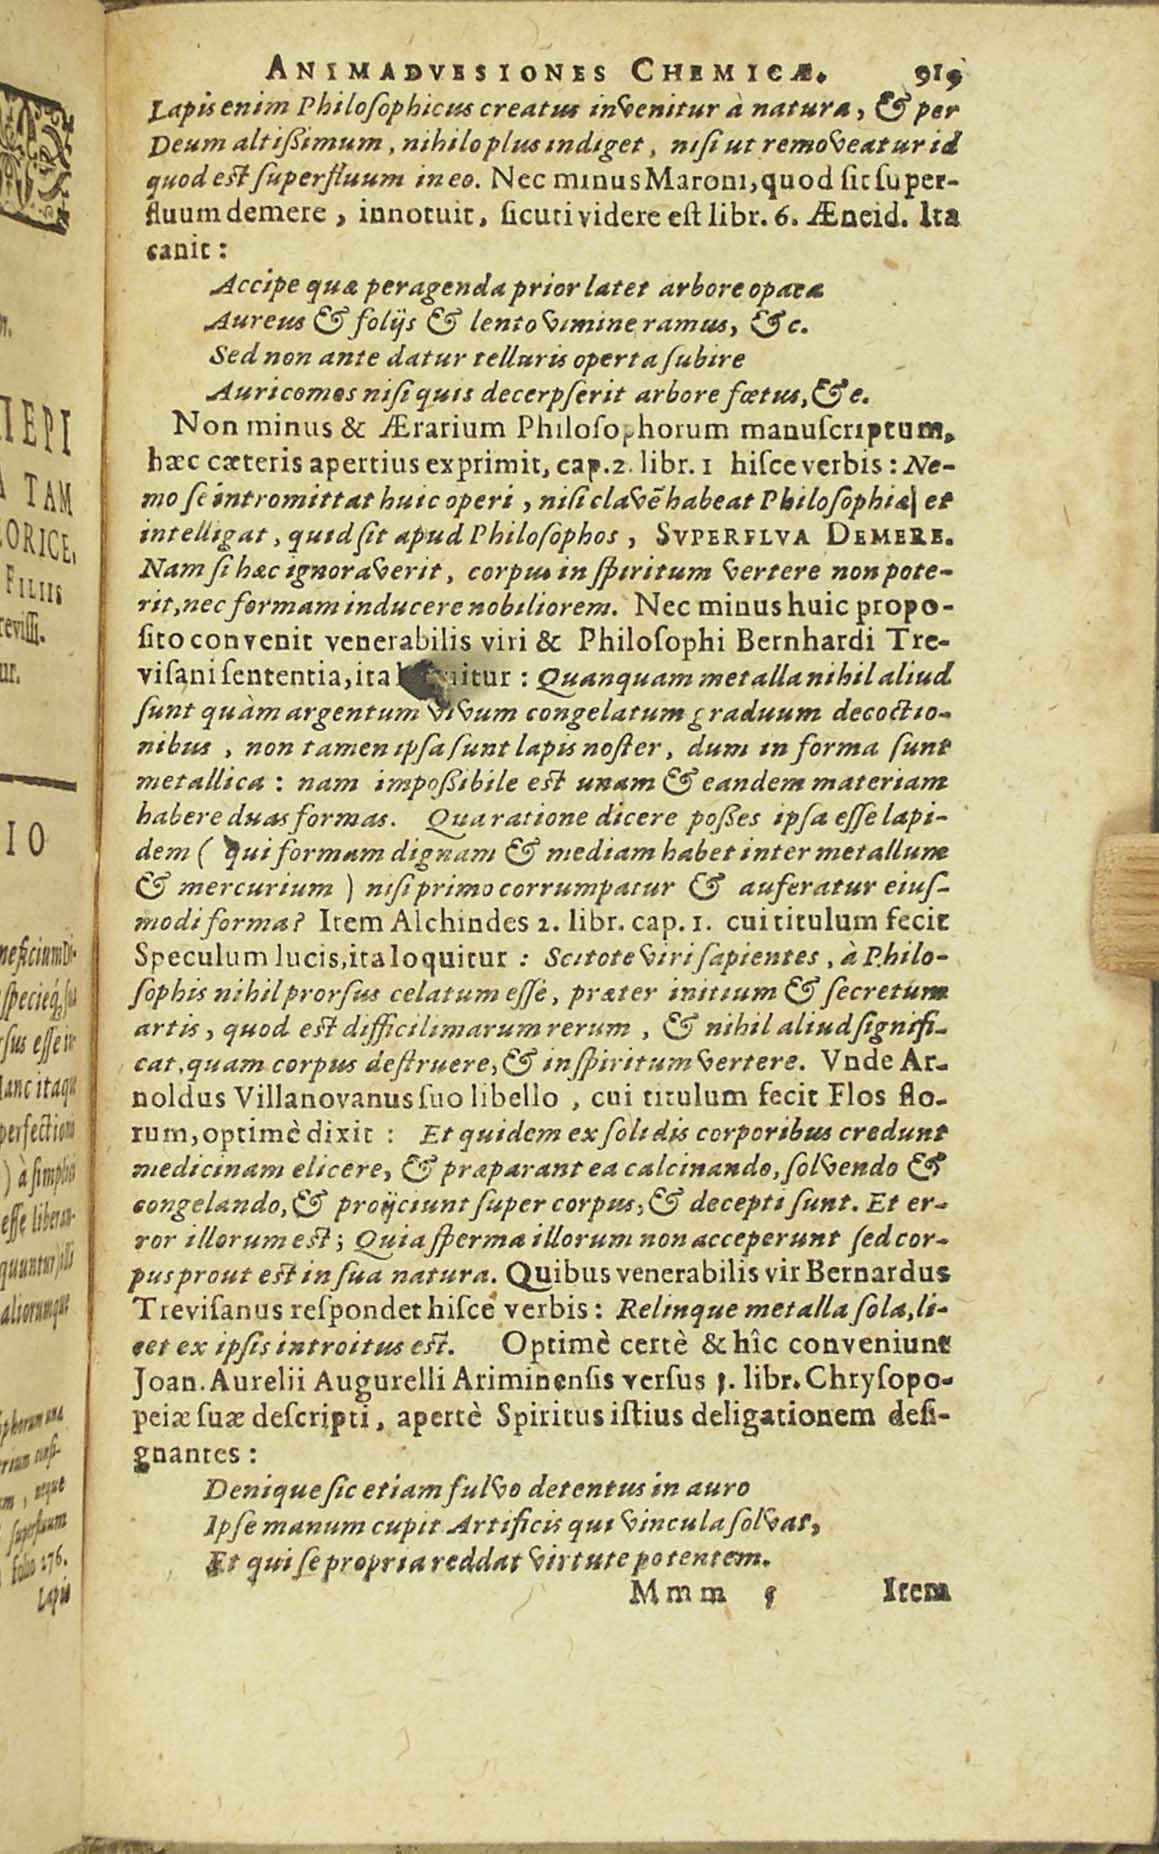 ANIMADVESIONES CHEMICÆ. 919
Lapis enim Philosophicus creatus invenitur à natura, & per
Deum altißimum, nihilo plus indiget, nisi ut removeatur id
quod est superfluum in eo. Nec minus Maroni, quod sit super-
fluum demere, innotuit, sicuti videre est libr. 6. Æneid. Ita
canit:
Accipe quæ peragenda prior latet arbore opaca
Aureus & folijs & lento vimine ramus, &c.
Sed non ante datur telluris operta subire
Auricomos nisi quis decerpserit arbore fœtus, &e.
Non minus & Ærarium Philosophorum manuscriptum,
hæc cæteris apertius exprimit, cap. 2. libr. 1 hisce verbis: Ne-
mo se intromittat huic operi, nisi clavẽ habeat Philosophiæ et
intelligat, quid sit apud Philosophos, SVPERFLVA DEMERE.
Nam si hæc ignoraverit, corpus in spiritum vertere non pote-
rit, nec formam inducere nobiliorem. Nec minus huic propo-
sito convenit venerabilis viri & Philosophi Bernhardi Tre-
visani sententia, ita : Quanquam metalla nihil aliud
sunt quàm argentum vivum congelatum graduum decoctio-
nibus, non tamen ipsa sunt lapis noster, dum in forma sunt
metallica: nam impoßibile est unam & eandem materiam
habere duas formas. Qua ratione dicere poßes ipsa esse lapi-
dem ( qui formam dignam & mediam habet inter metallum
& mercurium ) nisi primo corrumpatur & auferatur eius-
modi forma? Item Alchindes 2. libr. cap. 1. cui titulum fecit
Speculum lucis, ita loquitur: Scitote viri sapientes, à Philo-
sophis nihil prorsus celatum esse, præter initium & secretum
artis, quod est difficilimarum rerum, & nihil aliud signifi-
cat, quam corpus destruere, & in spiritum vertere. Vnde Ar-
noldus Villanovanus suo libello, cui titulum fecit Flos flo-
rum, optimè dixit: Et quidem ex solidis corporibus credunt
medicinam elicere, & præparant ea calcinando, solvendo &
congelando, & proijciunt super corpus, & decepti sunt. Et er-
ror illorum est; Quia sperma illorum non acceperunt sed cor-
pus prout est in sua natura. Quibus venerabilis vir Bernardus
Trevisanus respondet hisce verbis: Relinque metalla sola, li-
cet ex ipsis introitus est. Optimè certè & hîc conveniunt
Joan. Aurelii Augurelli Ariminensis versus 1. libr. Chrysopo-
peiæ suæ descripti, apertè Spiritus istius deligationem desi-
gnantes:
Denique sic etiam fulvo detentus in auro
Ipse manum cupit Artificis qui vincula solvat,
Et qui se propria reddat virtute potentem.
Mmm Item